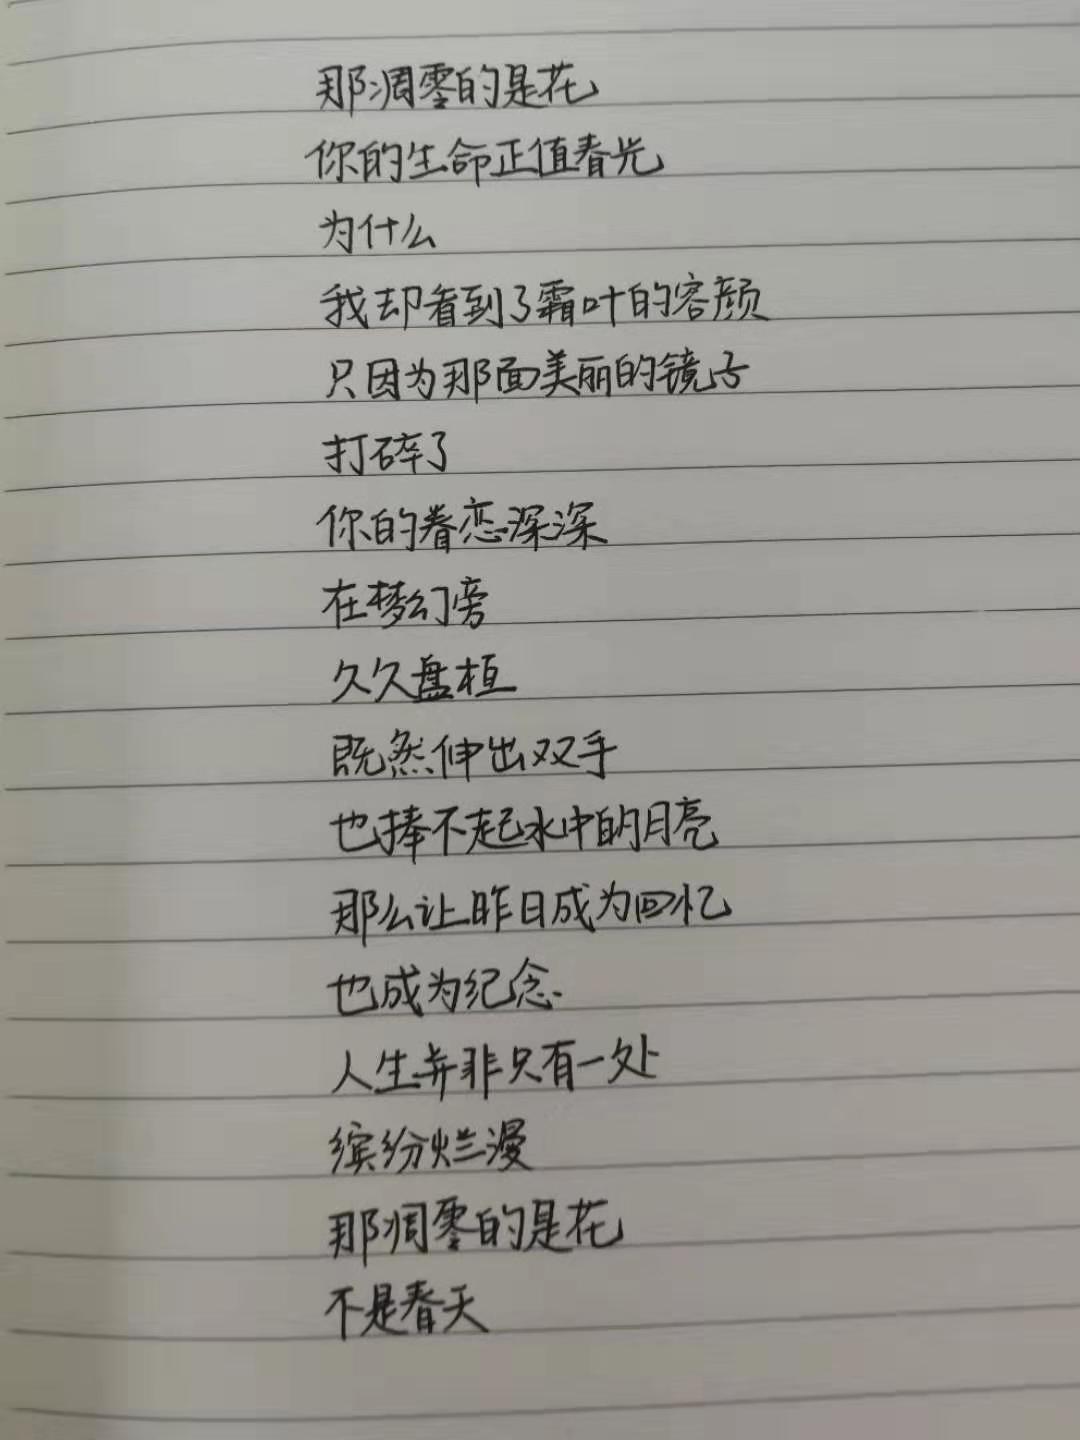 那凋零的是花
你的生命正值春光
为什么
我却看到了霜叶的容颜
只因为那面美丽的镜子
打碎了
你的眷恋深深
在梦幻旁
久久盘桓
既然伸出双手
也捧不起水中的月亮
那么让昨日成为回忆
也成为纪念
人生并非只有一处
缤纷烂漫
那凋零的是花
不是春天